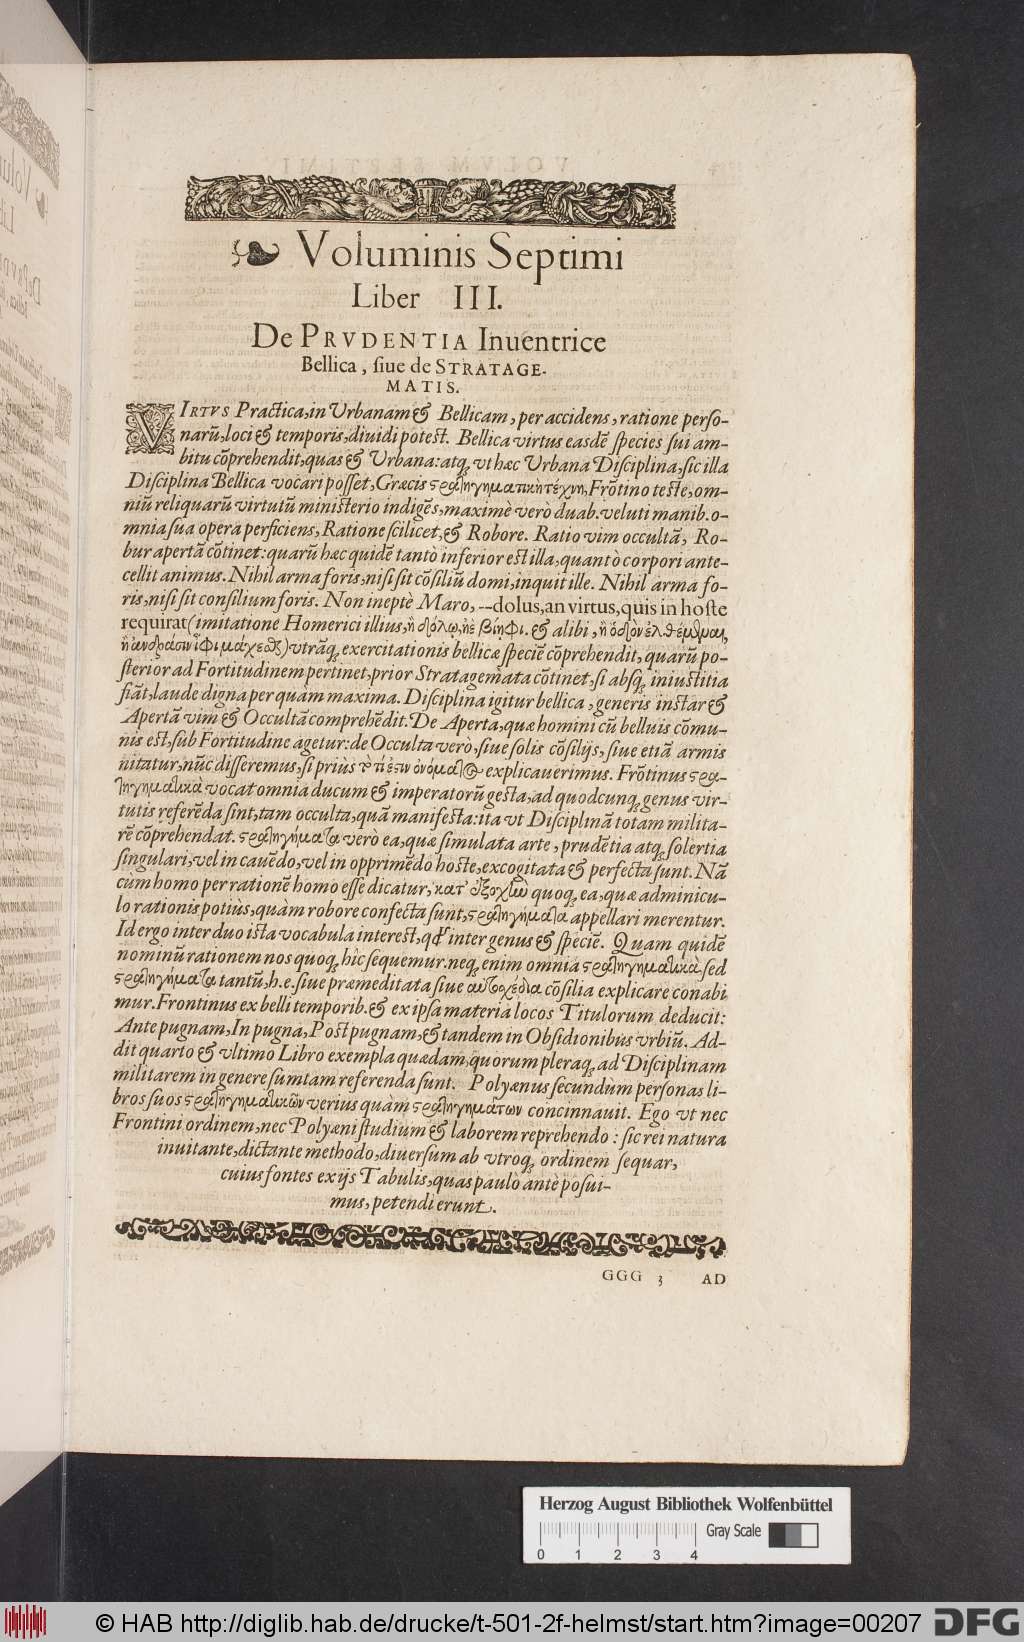 Voluminis Septimi
Liber III.
De PRVDENTIA Inuentrice
Bellica, siue de STRATAGE-
MATIS.
VIRTVS Practica, in Urbanam & Bellicam, per accidens, ratione perso-
narū, loci & temporis, diuidi potest. Bellica virtus easdē species sui am-
bitu cōprehendit, quas & Urbana: atq; vt hæc Urbana Disciplina, sic illa
Disciplina Bellica vocari posset, Græcis στρατηγηματικὴ τέχνη, Frōtino teste, om-
niū reliquarū virtutū ministerio indigēs, maximè verò duab. veluti manib. o-
mnia sua opera perficiens, Ratione scilicet, & Robore. Ratio vim occultā, Ro-
bur apertā cōtinet: quarū hæc quidē tantò inferior est illa, quantò corpori ante-
cellit animus. Nihil arma foris, nisi sit cōsiliū domi, inquit ille. Nihil arma fo-
ris, nisi sit consilium foris. Non ineptè Maro, --dolus, an virtus, quis in hoste
requirat (imitatione Homerici illius, ἢ δόλῳ, ἠὲ βίηφι. & alibi,
vtrāq; exercitationis bellicæ speciē cōprehendit, quarū po-
sterior ad Fortitudinem pertinet, prior Stratagemata cōtinet, si absq; iniustitia
fiāt, laude digna per quàm maxima. Disciplina igitur bellica, generis instar &
Apertā vim & Occultā comprehēdit. De Aperta, quæ homini cū belluis cōmu-
nis est, sub Fortitudine agetur: de Occulta verò, siue solis cōsilijs, siue etiā armis
nitatur, nūc disseremus, si priùs τὸ τί ἐστιν ὀνόματος explicauerimus. Frōtinus στρα-
τηγηματικὰ vocat omnia ducum & imperatorū gesta, ad quodcunq; genus vir-
tutis referēda sint, tam occulta, quā manifesta: ita vt Disciplinā totam milita-
rē cōprehendat. στρατηγήματα verò ea, quæ simulata arte, prudētia atq; solertia
singulari, vel in cauēdo, vel in opprimēdo hoste, excogitata & perfecta sunt. Nā
cum homo per rationē homo esse dicatur, κατ' ἐξοχὴν quoq; ea, quæ adminicu-
lo rationis potiùs, quàm robore confecta sunt, στρατηγήματα appellari merentur.
Id ergo inter duo ista vocabula interest, qd inter genus & speciē. Quam quidē
nominū rationem nos quoq; hîc sequemur. neq; enim omnia στρατηγηματικὰ sed
στρατηγήματα tantū, h.e. siue præmeditata siue αὐτοσχέδια cōsilia explicare conabi
mur. Frontinus ex belli temporib. & ex ipsa materiâ locos Titulorum deducit:
Ante pugnam, In pugna, Post pugnam, & tandem in Obsidionibus vrbiū. Ad-
dit quarto & vltimo Libro exempla quædam, quorum pleraq; ad Disciplinam
militarem in genere sumtam referenda sunt. Polyænus secundùm personas li-
bros suos στρατηγηματικῶν verius quàm στρατηγημάτων concinnauit. Ego vt nec
Frontini ordinem, nec Polyæni studium & laborem reprehendo: sic rei natura
inuitante, dictante methodo, diuersum ab vtroq; ordinem sequar,
cuius fontes ex ijs Tabulis, quas paulò antè posui-
mus, petendi erunt.
GGG 3 AD
Herzog August Bibliothek Wolfenbüttel
Gray Scale
0 1 2 3 4
© HAB http://diglib.hab.de/drucke/t-501-2f-helmst/start.htm?image=00207
DFG